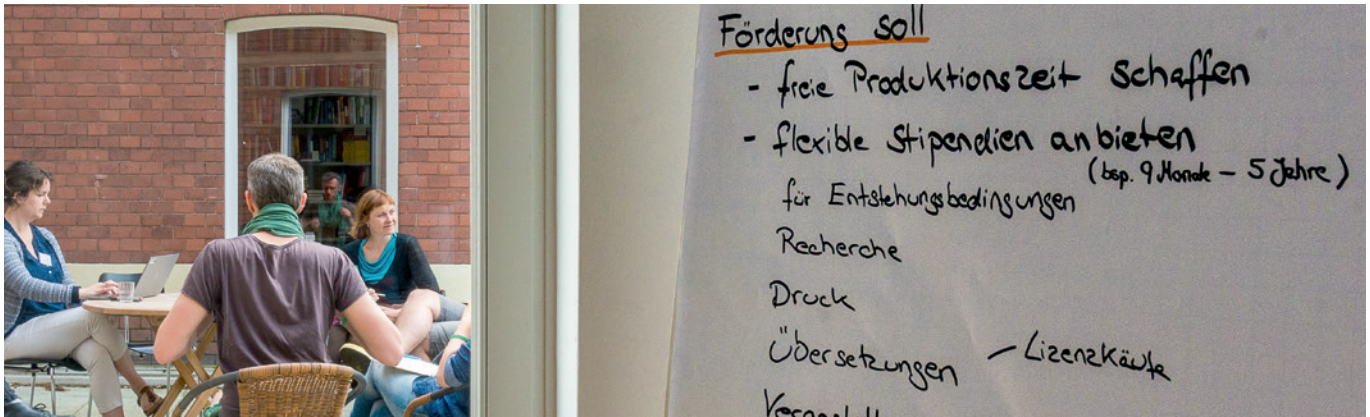 Förderung soll
- freie Produktionszeit schaffen
- flexible Stipendien anbieten
(bsp. 9 Monate – 5 Jahre)
für Entstehungsbedingungen
Recherche
Druck
Übersetzungen – Lizenzkäufe